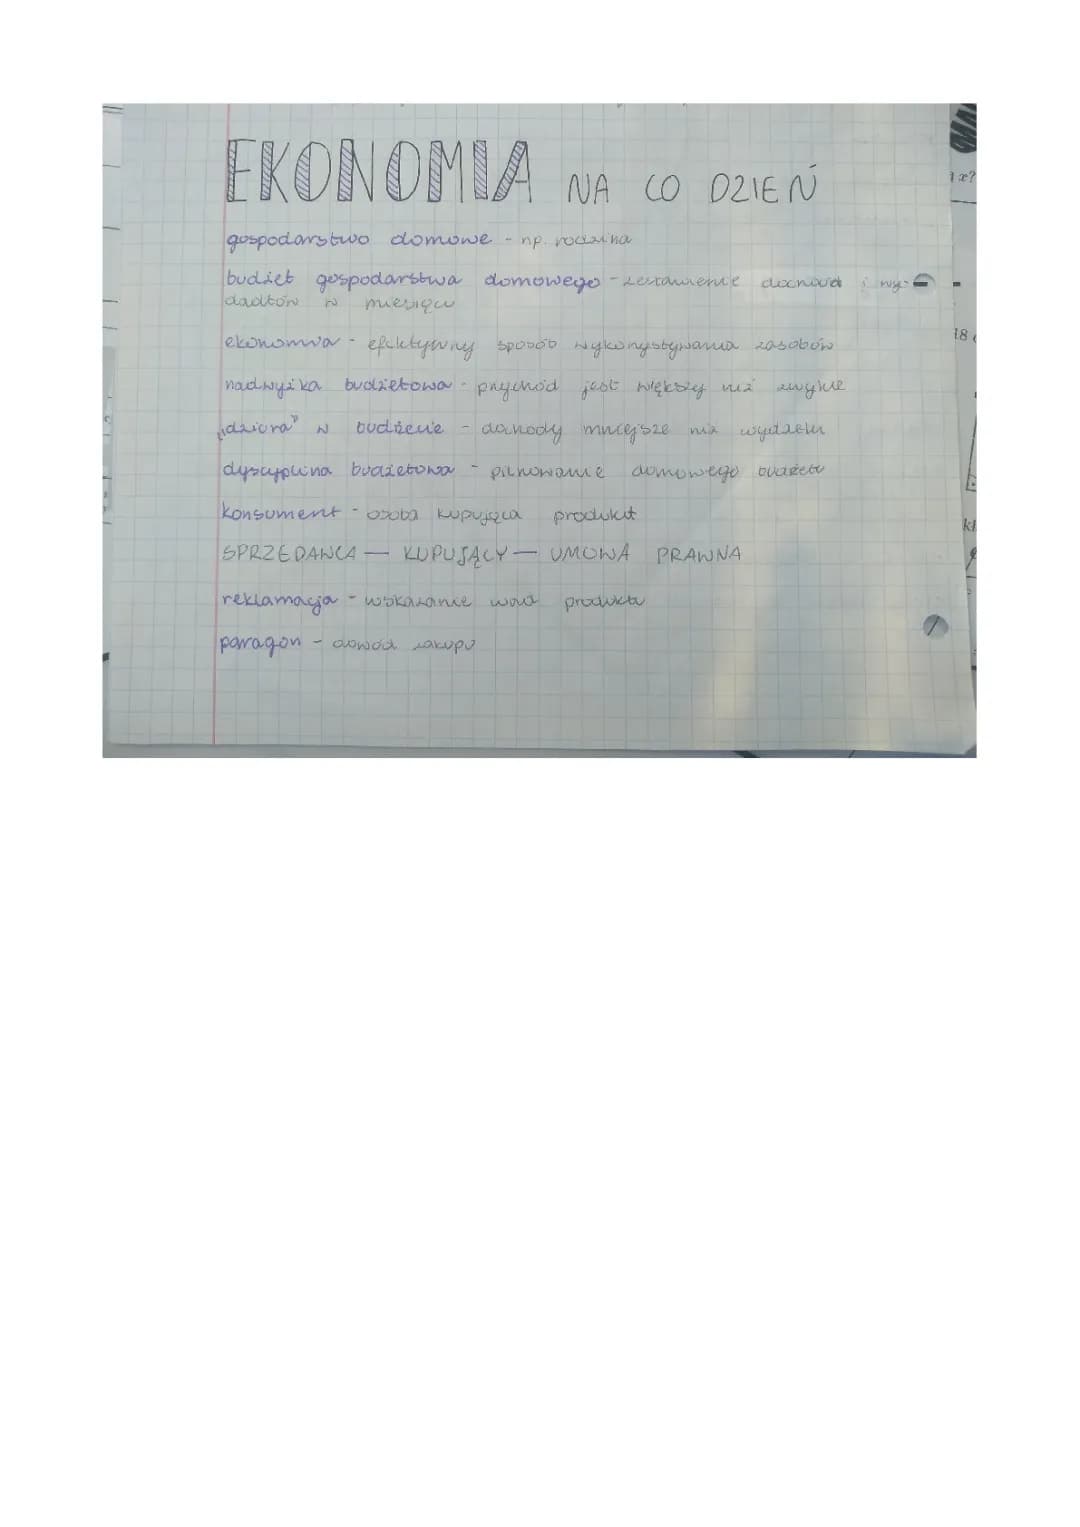 EKONOMIA NA CO DZIEŃ
gospodarstwo domowe - np. rodzina
budżet gospodarstwa domowego - zestawienie dochód i wy-
dadków w miesiącu
ekonomia - efektywny sposób wykorzystywania zasobów
nadwyżka budżetowa - przychód jest większy niż zwykle
„dziura" w budżecie - dochody mniejsze niż wydatki
dyscyplina budżetowa - pilnowanie domowego budżetu
konsument - osoba kupująca produkt
SPRZEDAWCA — KUPUJĄCY — UMOWA PRAWNA
reklamacja - wskazanie wad produktu
paragon - dowód zakupu
x?
18
kl